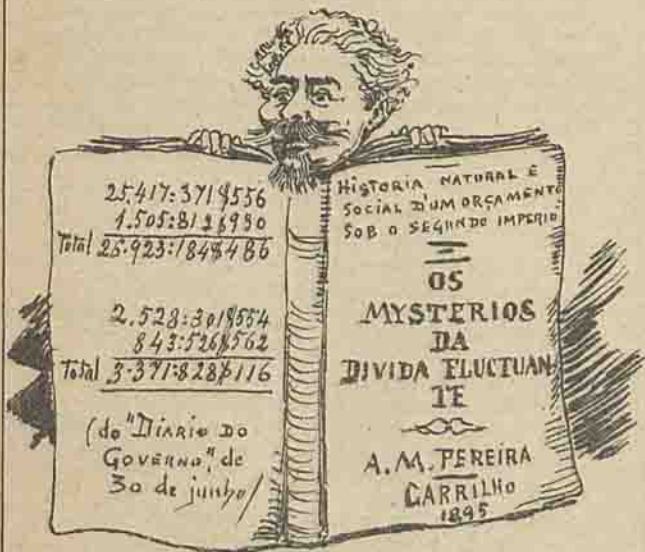 25.417:371$556
1.505:812$930
Total 25.923:184$486
2.528:301$554
843:526$562
Total 3.371:828$116
(do "DIARIO DO
GOVERNO", de
30 de junho)
HISTORIA NATURAL E
SOCIAL D'UM ORÇAMENTO
SOB O SEGUNDO IMPERIO
OS
MYSTERIOS
DA
DIVIDA FLUCTUAN
TE
A. M. PEREIRA
CARRILHO
1895